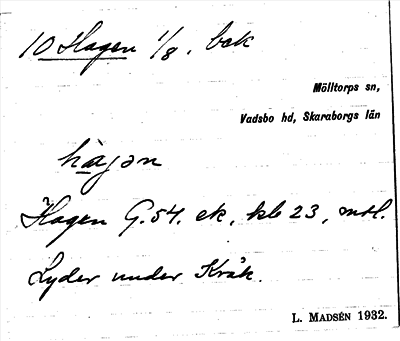 10 Hagen 1/8. bck
Mölltorps sn,
Vadsbo hd, Skaraborgs län
hagən
Hagen G.54. ek, kb 23, mtl.
Lyder under Kråk.
L. MADSÉN 1932.